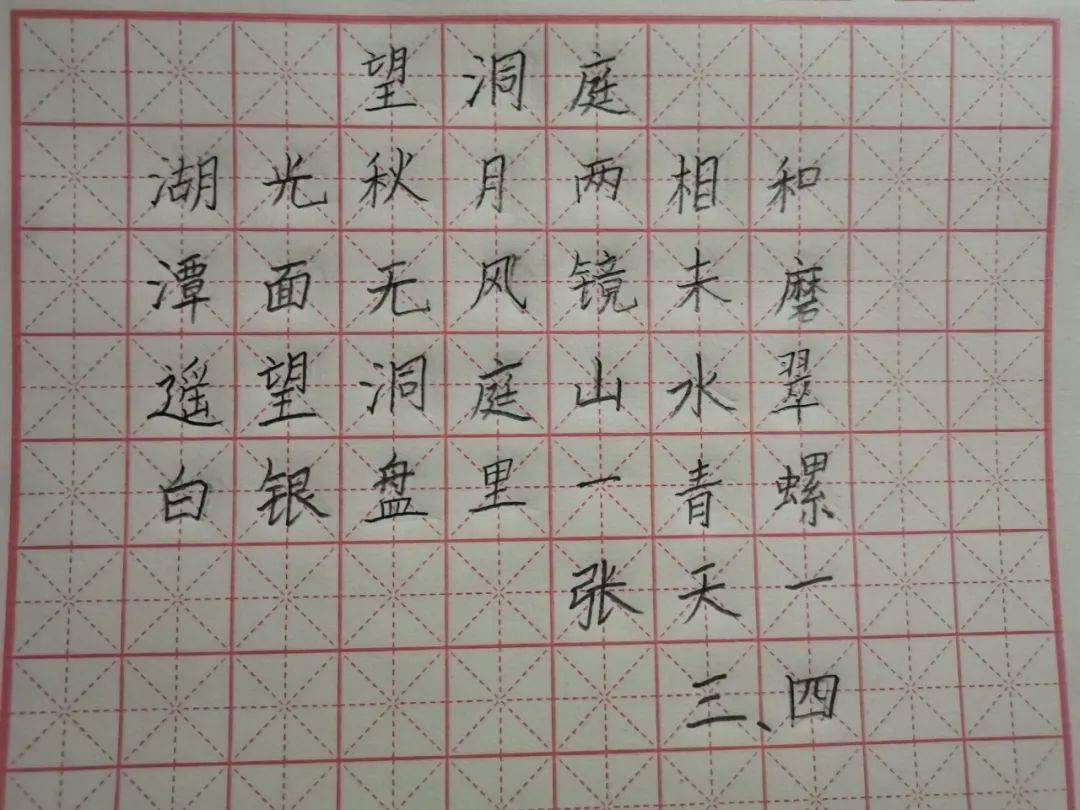 望洞庭
湖光秋月两相和
潭面无风镜未磨
遥望洞庭山水翠
白银盘里一青螺
张天一
三、四